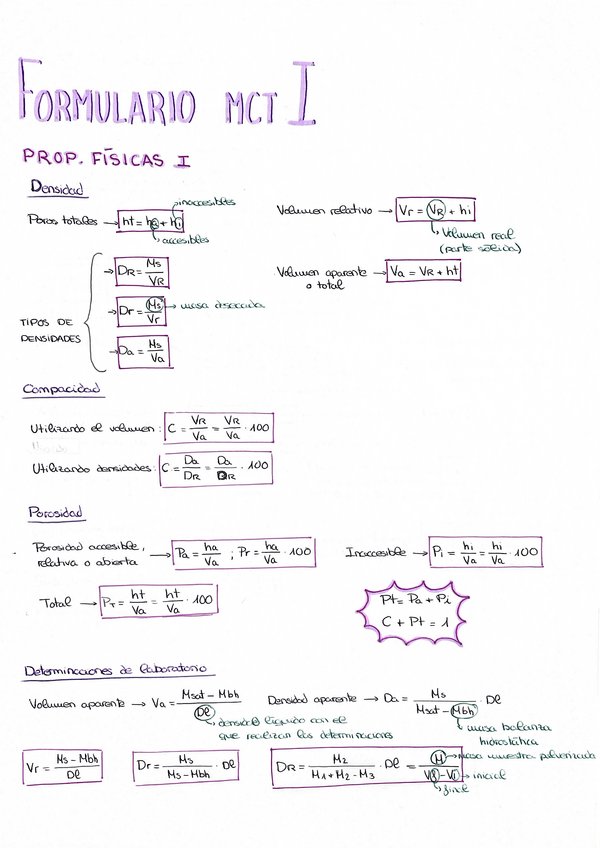 FORMULARIO MCT I
PROP. FÍSICAS I
Densidad
inaccesibles
Poros totales → ht = ha + hi
accesibles
Volumen relativo → Vr = VR + hi
Volumen real
(parte sólida)
Volumen aparente → Va = VR + ht
o total
TIPOS DE
DENSIDADES
→ DR = Ms / VR
→ Dr = Ms / Vr → masa disecada
→ Da = Ms / Va
Compacidad
Utilizando el volumen: C = VR / Va = VR / Va · 100
Utilizando densidades: C = Da / DR = Da / DR · 100
Porosidad
Porosidad accesible,
relativa o abierta → Pa = ha / Va ; Pr = ha / Va · 100
Inaccesible → Pi = hi / Va = hi / Va · 100
Total → PT = ht / Va = ht / Va · 100
Pt = Pa + Pi
C + Pt = 1
Determinaciones de laboratorio
Volumen aparente → Va = Msat - Mbh / Dl
densidad líquido con el
que realizan las determinaciones
Densidad aparente → Da = Ms / Msat - Mbh · Dl
masa balanza
hidrostática
Vr = Ms - Mbh / Dl
Dr = Ms / Ms - Mbh · Dl
DR = M2 / M1 + M2 - M3 · Dl = M / Vf - Vi
masa muestra pulverizada
inicial
final